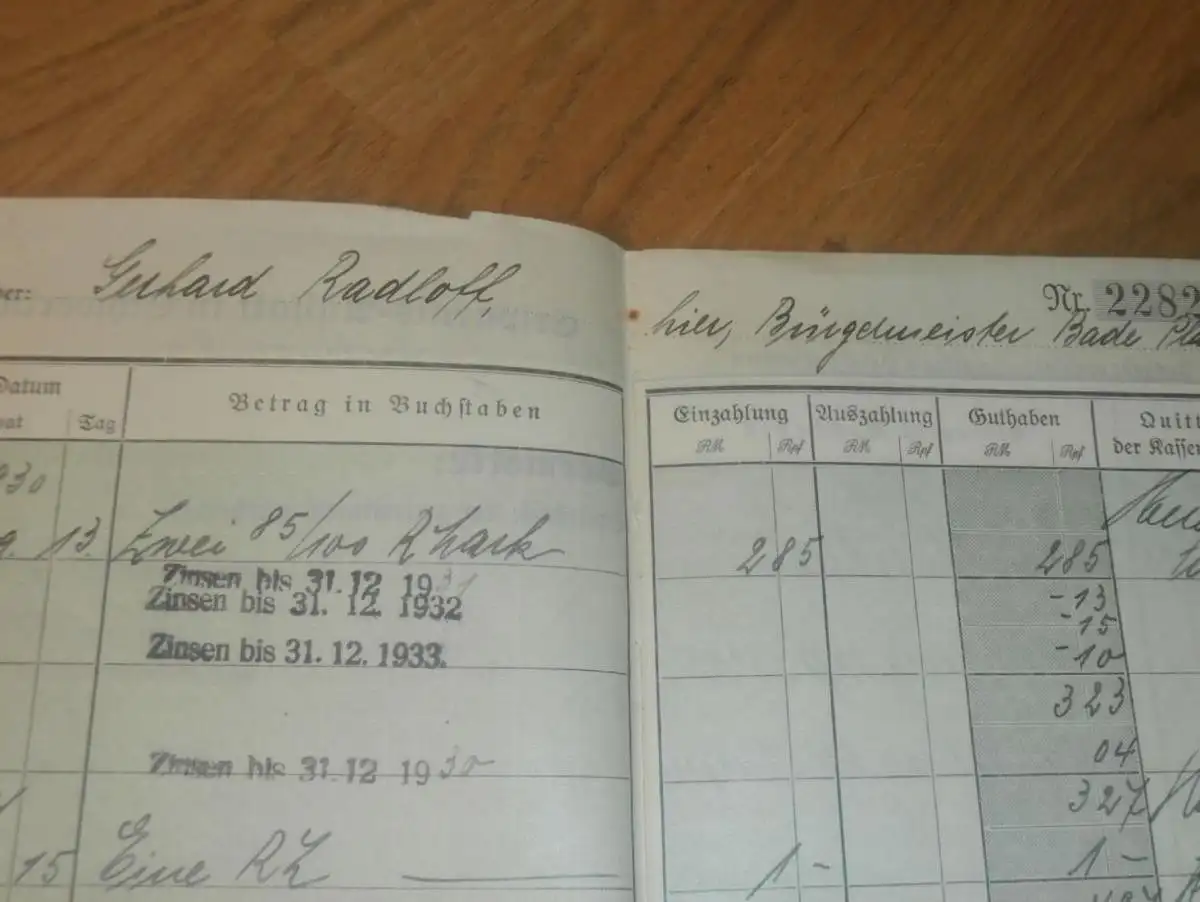 Gerhard Radloff,
Nr. 2282
hier, Bürgermeister Bade
Datum
Tag
Betrag in Buchstaben
Einzahlung
Auszahlung
Guthaben
RM Rpf RM Rpf RM Rpf
der Kassen
13. Zwei 85/100 RMark 2 85 2 85
Zinsen bis 31. 12. 1931 - 13
Zinsen bis 31. 12. 1932 - 15
Zinsen bis 31. 12. 1933. - 10
3 23
Zinsen bis 31. 12. 1930 04
3 27
15 Eine RM 1 - 1 -